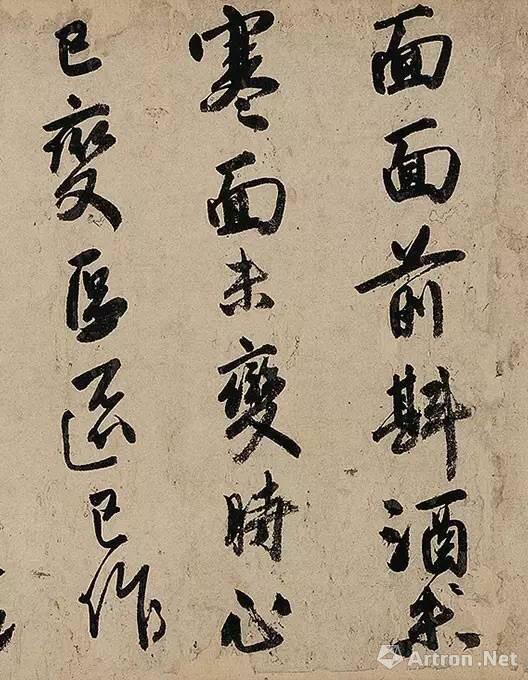 面面前斟酒未
寒面未變時心
已變還已作
Artron.Net